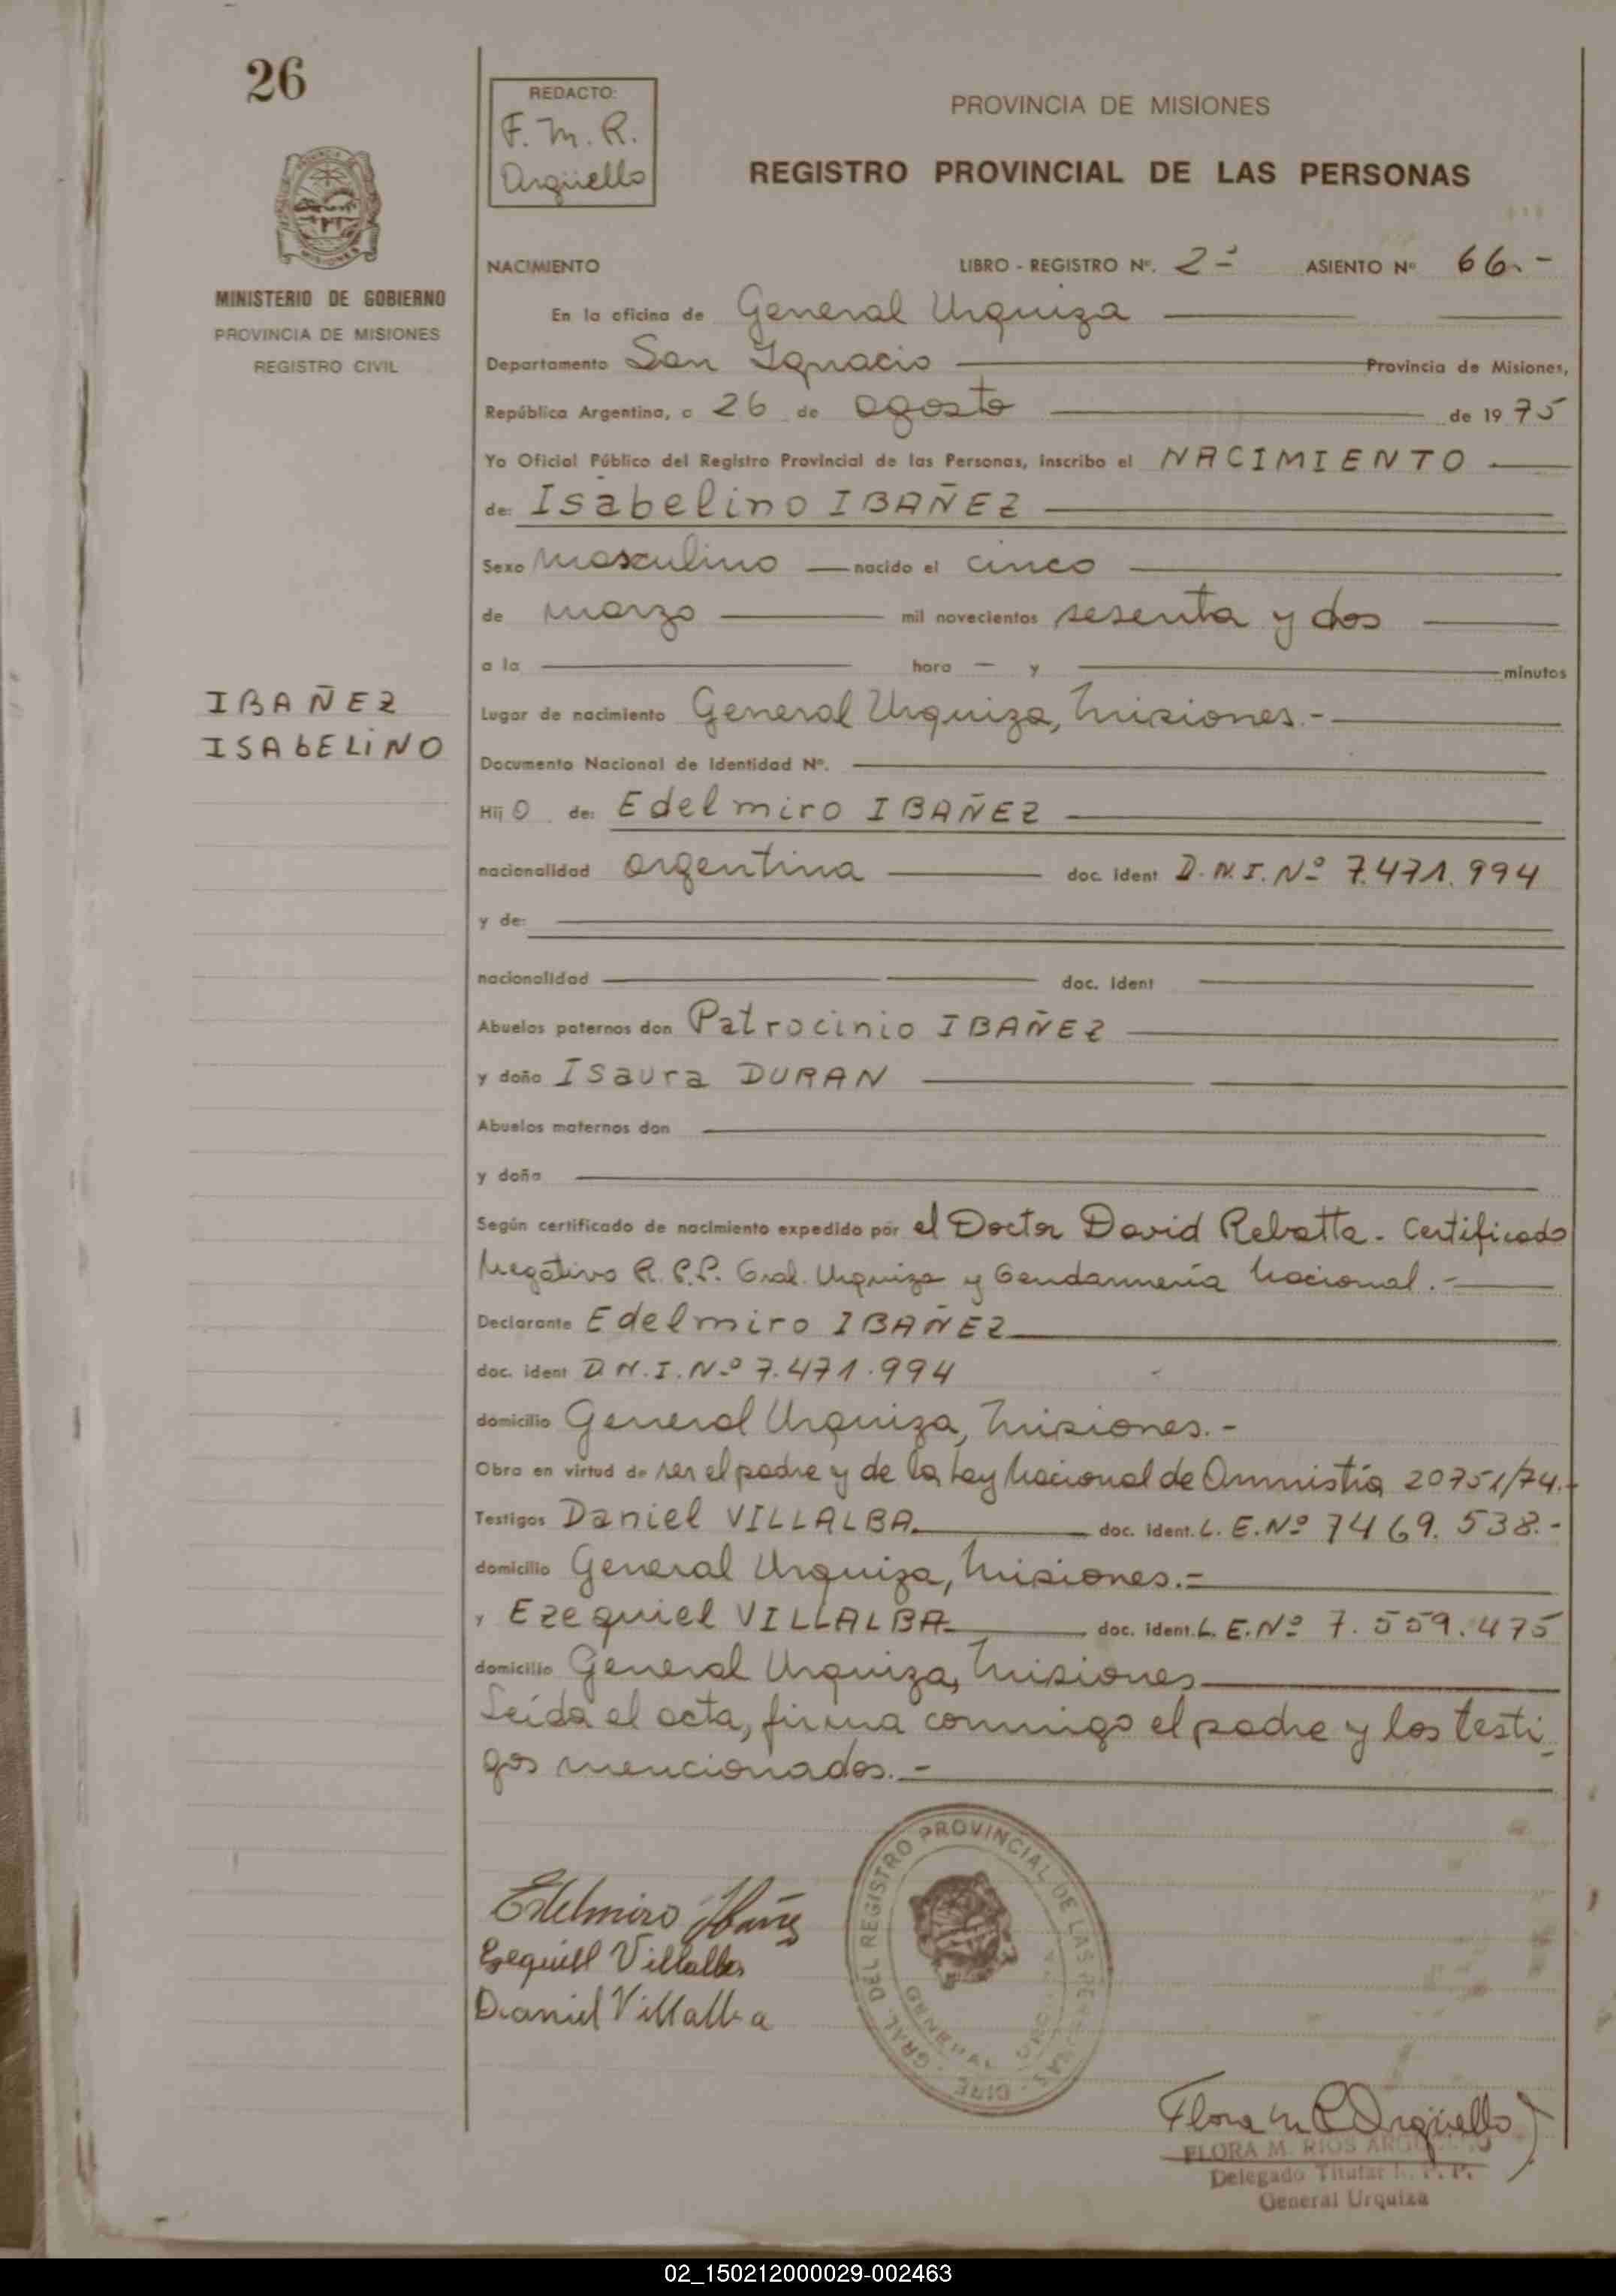 26
REDACTO:
F. M. R.
Argüello
PROVINCIA DE MISIONES
REGISTRO PROVINCIAL DE LAS PERSONAS
MINISTERIO DE GOBIERNO
PROVINCIA DE MISIONES
REGISTRO CIVIL
NACIMIENTO LIBRO - REGISTRO Nº. 2- ASIENTO Nº 66.-
En la oficina de General Urquiza
Departamento San Ignacio Provincia de Misiones,
República Argentina, a 26 de agosto de 1975
Yo Oficial Público del Registro Provincial de las Personas, inscribo el NACIMIENTO
de: Isabelino IBAÑEZ
Sexo masculino nacido el cinco
de marzo mil novecientos sesenta y dos
a la hora - y minutos
IBAÑEZ
ISAbELiNO
Lugar de nacimiento General Urquiza, Misiones.-
Documento Nacional de Identidad Nº.
Hijo de: Edelmiro IBAÑEZ
nacionalidad argentina doc. ident D.N.I.Nº 7.471.994
y de:
nacionalidad doc. ident
Abuelos paternos don Patrocinio IBAÑEZ
y doña Isaura DURAN
Abuelos maternos don
y doña
Según certificado de nacimiento expedido por el Doctor David Rebatta - Certificado
Negativo R.P.P. Gral. Urquiza y Gendarmería Nacional.-
Declarante Edelmiro IBAÑEZ
doc. ident D.N.I.Nº 7.471.994
domicilio General Urquiza, Misiones.-
Obra en virtud de ser el padre y de la Ley Nacional de Amnistía 20751/74.-
Testigos Daniel VILLALBA doc. ident. L.E.Nº 7469.538.-
domicilio General Urquiza, Misiones.=
y Ezequiel VILLALBA doc. ident. L.E.Nº 7.559.475
domicilio General Urquiza, Misiones
Leída el acta, firma conmigo el padre y los testi-
gos mencionados.-
Edelmiro Ibañez
Esequiel Villalba
Daniel Villalba
DIRE GRAL. DEL REGISTRO PROVINCIAL DE LAS PERSONAS
GENERAL
Flora M R Argüello
FLORA M. RIOS ARGÜELLO
Delegado Titular R. P. P.
General Urquiza
02_150212000029-002463